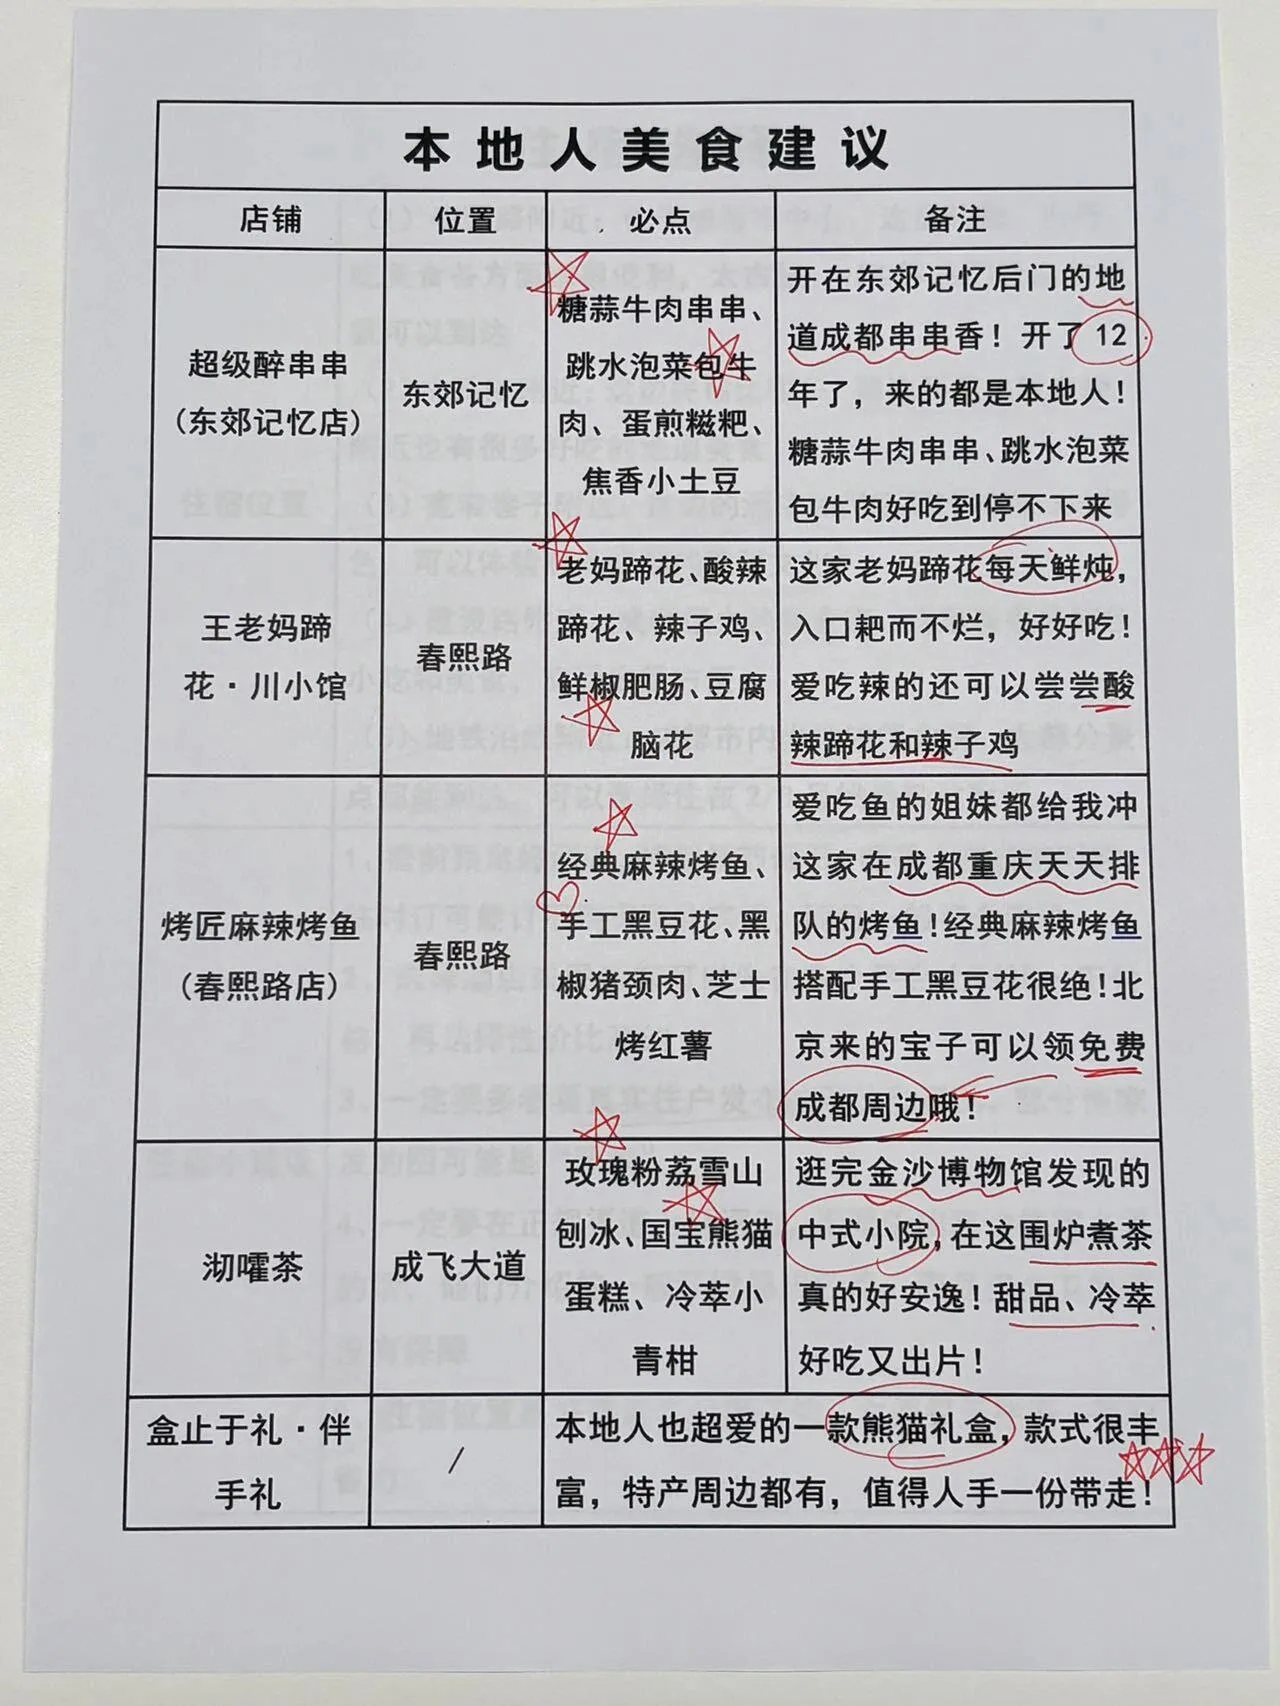 本地人美食建议
店铺
位置
必点
备注
超级醉串串
(东郊记忆店)
东郊记忆
糖蒜牛肉串串、
跳水泡菜包牛
肉、蛋煎糍粑、
焦香小土豆
开在东郊记忆后门的地
道成都串串香！开了12
年了，来的都是本地人！
糖蒜牛肉串串、跳水泡菜
包牛肉好吃到停不下来
王老妈蹄
花·川小馆
春熙路
老妈蹄花、酸辣
蹄花、辣子鸡、
鲜椒肥肠、豆腐
脑花
这家老妈蹄花每天鲜炖，
入口耙而不烂，好好吃！
爱吃辣的还可以尝尝酸
辣蹄花和辣子鸡
烤匠麻辣烤鱼
(春熙路店)
春熙路
经典麻辣烤鱼、
手工黑豆花、黑
椒猪颈肉、芝士
烤红薯
爱吃鱼的姐妹都给我冲
这家在成都重庆天天排
队的烤鱼！经典麻辣烤鱼
搭配手工黑豆花很绝！北
京来的宝子可以领免费
成都周边哦！
沏嚯茶
成飞大道
玫瑰粉荔雪山
刨冰、国宝熊猫
蛋糕、冷萃小
青柑
逛完金沙博物馆发现的
中式小院，在这围炉煮茶
真的好安逸！甜品、冷萃
好吃又出片！
盒止于礼·伴
手礼
/
本地人也超爱的一款熊猫礼盒，款式很丰
富，特产周边都有，值得人手一份带走！